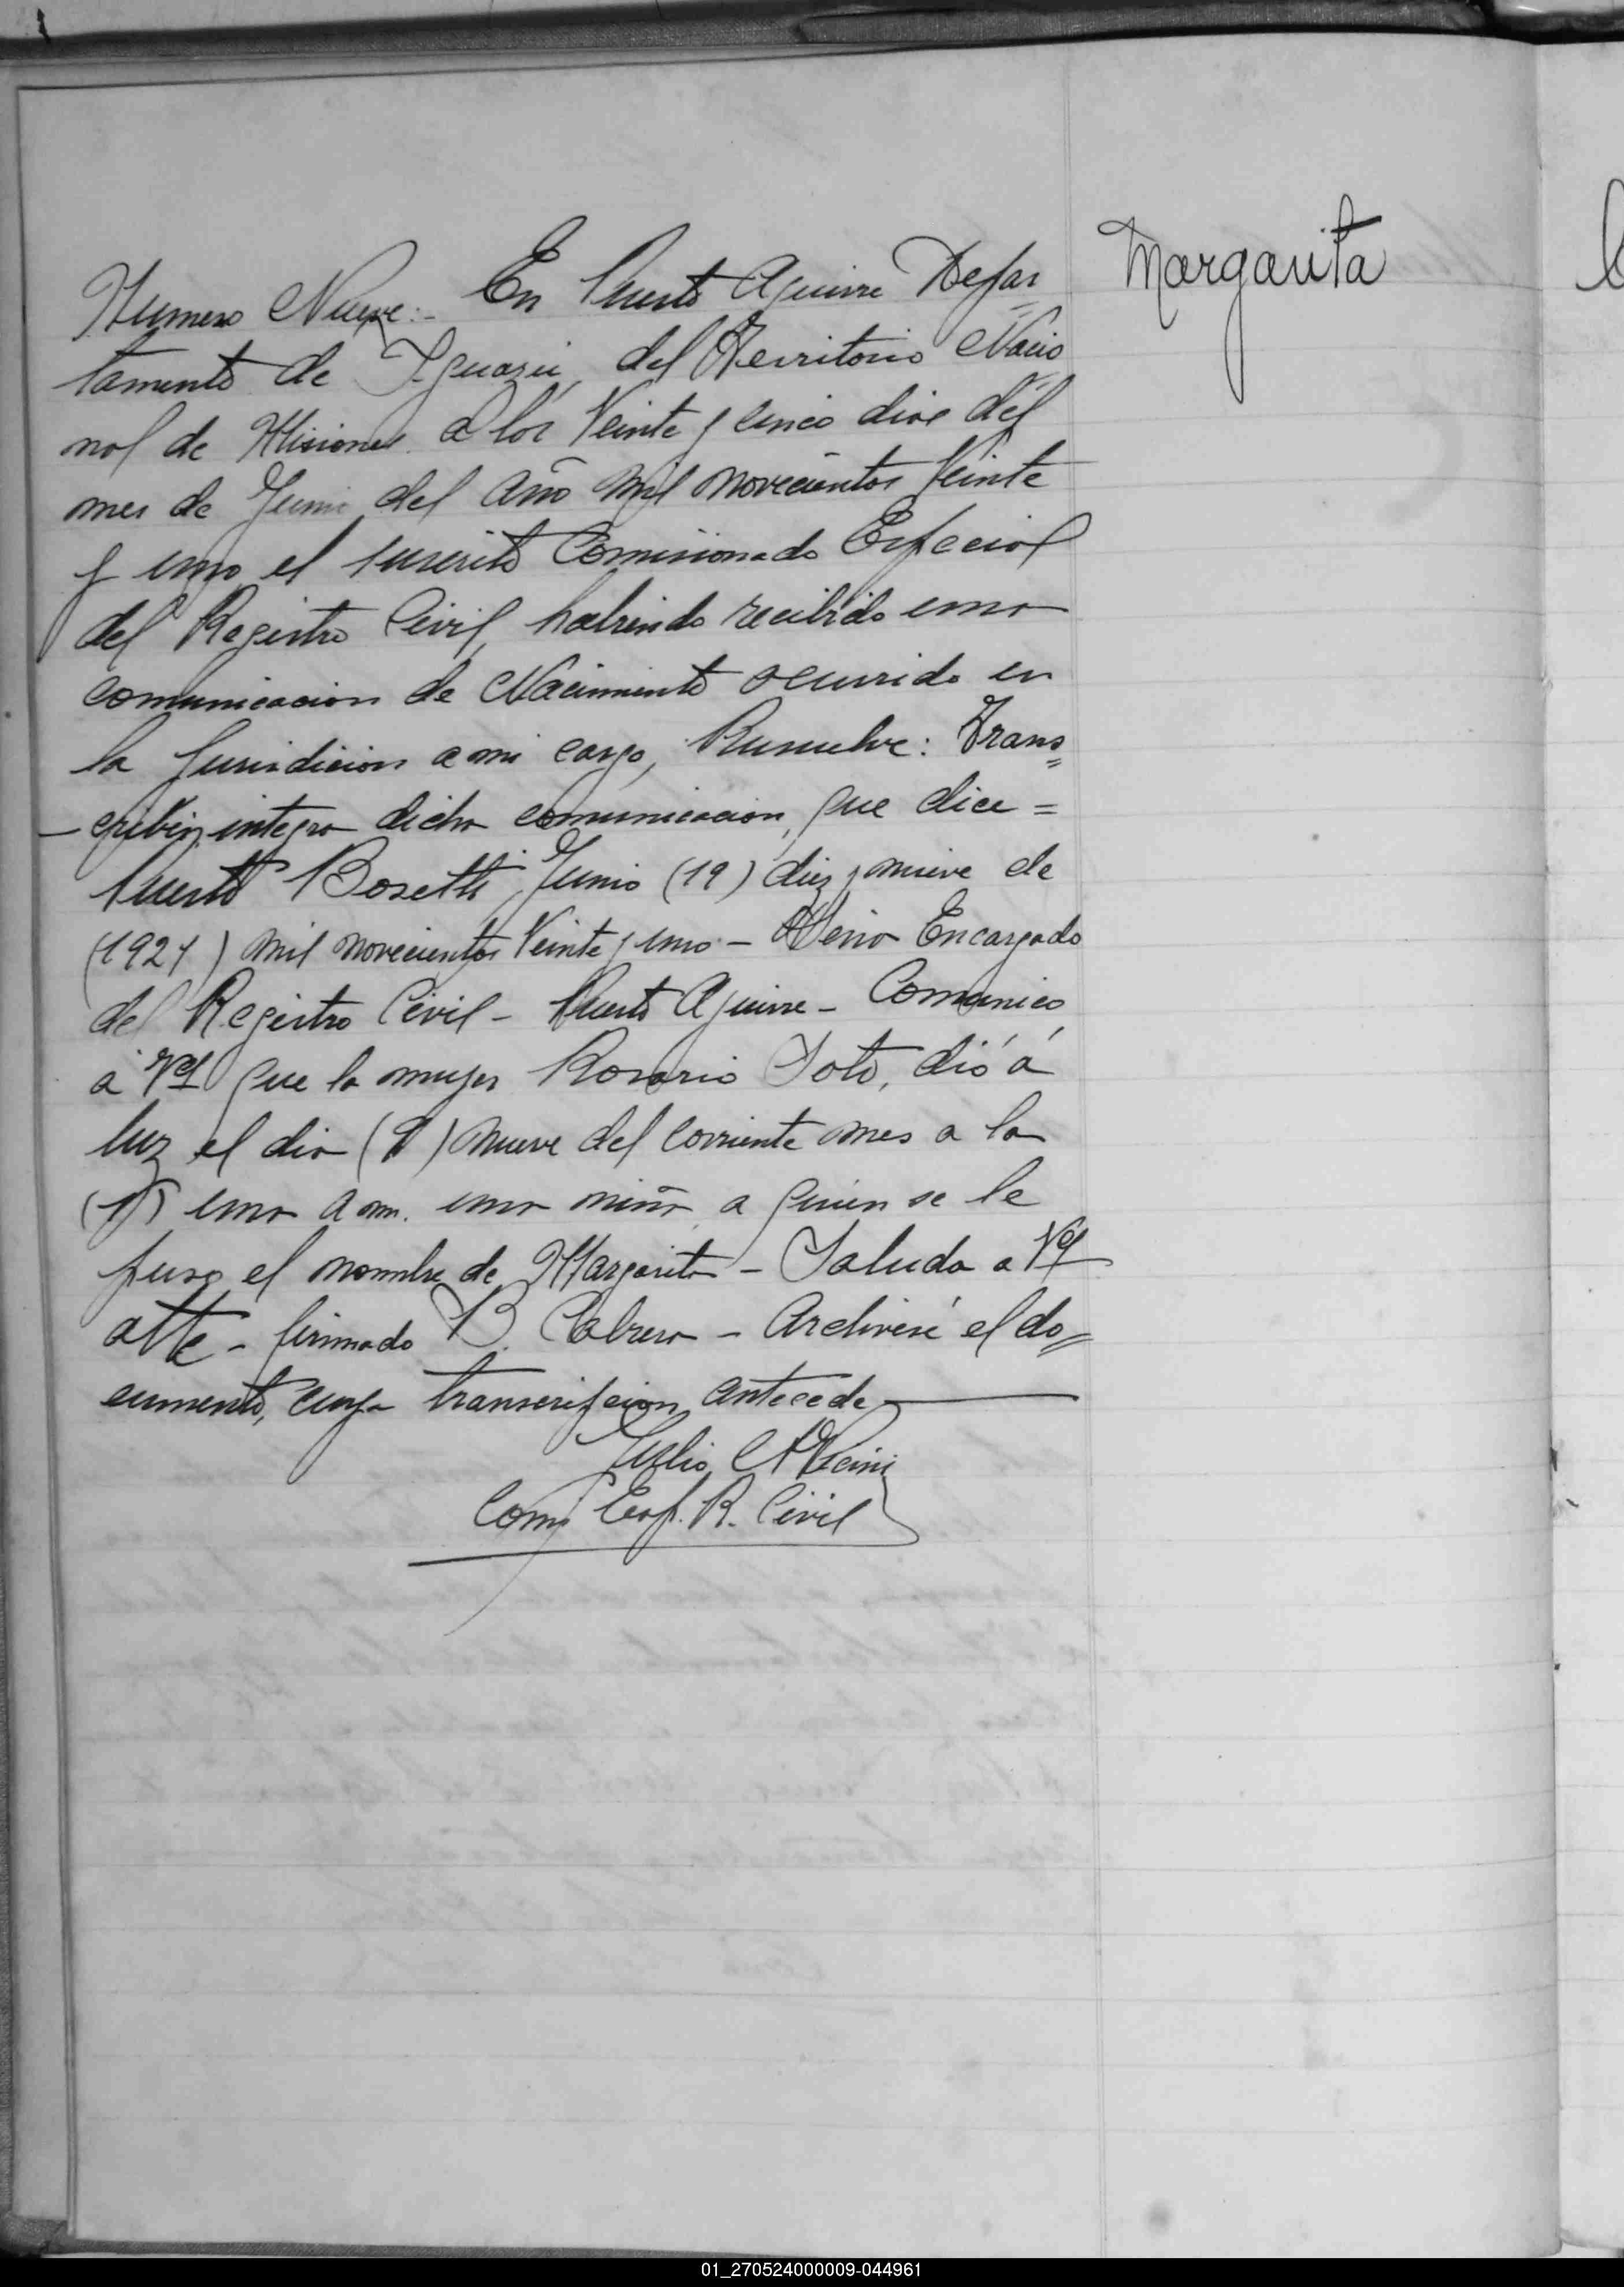 Margarita
Numero Nueve:- En Puerto Aguirre Depar
tamento de Iguazú, del Territorio Nacio
nal de Misiones a los Veinte y cinco dias del
mes de Junio del año mil novecientos Veinte
y uno, el suscrito Comisionado Especial
del Registro Civil, habiendo recibido una
comunicacion de Nacimiento ocurrido en
la Jurisdicion a mi cargo, Resuelve: Trans=
-cribir integra dicha comunicacion, que dice =
Puerto Bosetti, Junio (19) diez y nueve de
(1921) mil novecientos Veinte y uno - Encargado
del Registro Civil - Puerto Aguirre - Comunico
a Vd que la mujer Rosario Soto, dió á
luz el dia (9) nueve del corriente mes a la
(1) una a m. una niña a quien se le
puso el nombre de Margarita - Saluda a Vd
atte - firmado B. Cabrera - Archivese el do=
cumento, cuya transcripcion antecede
Julio
Com. Esp. R. Civil
01_270524000009-044961